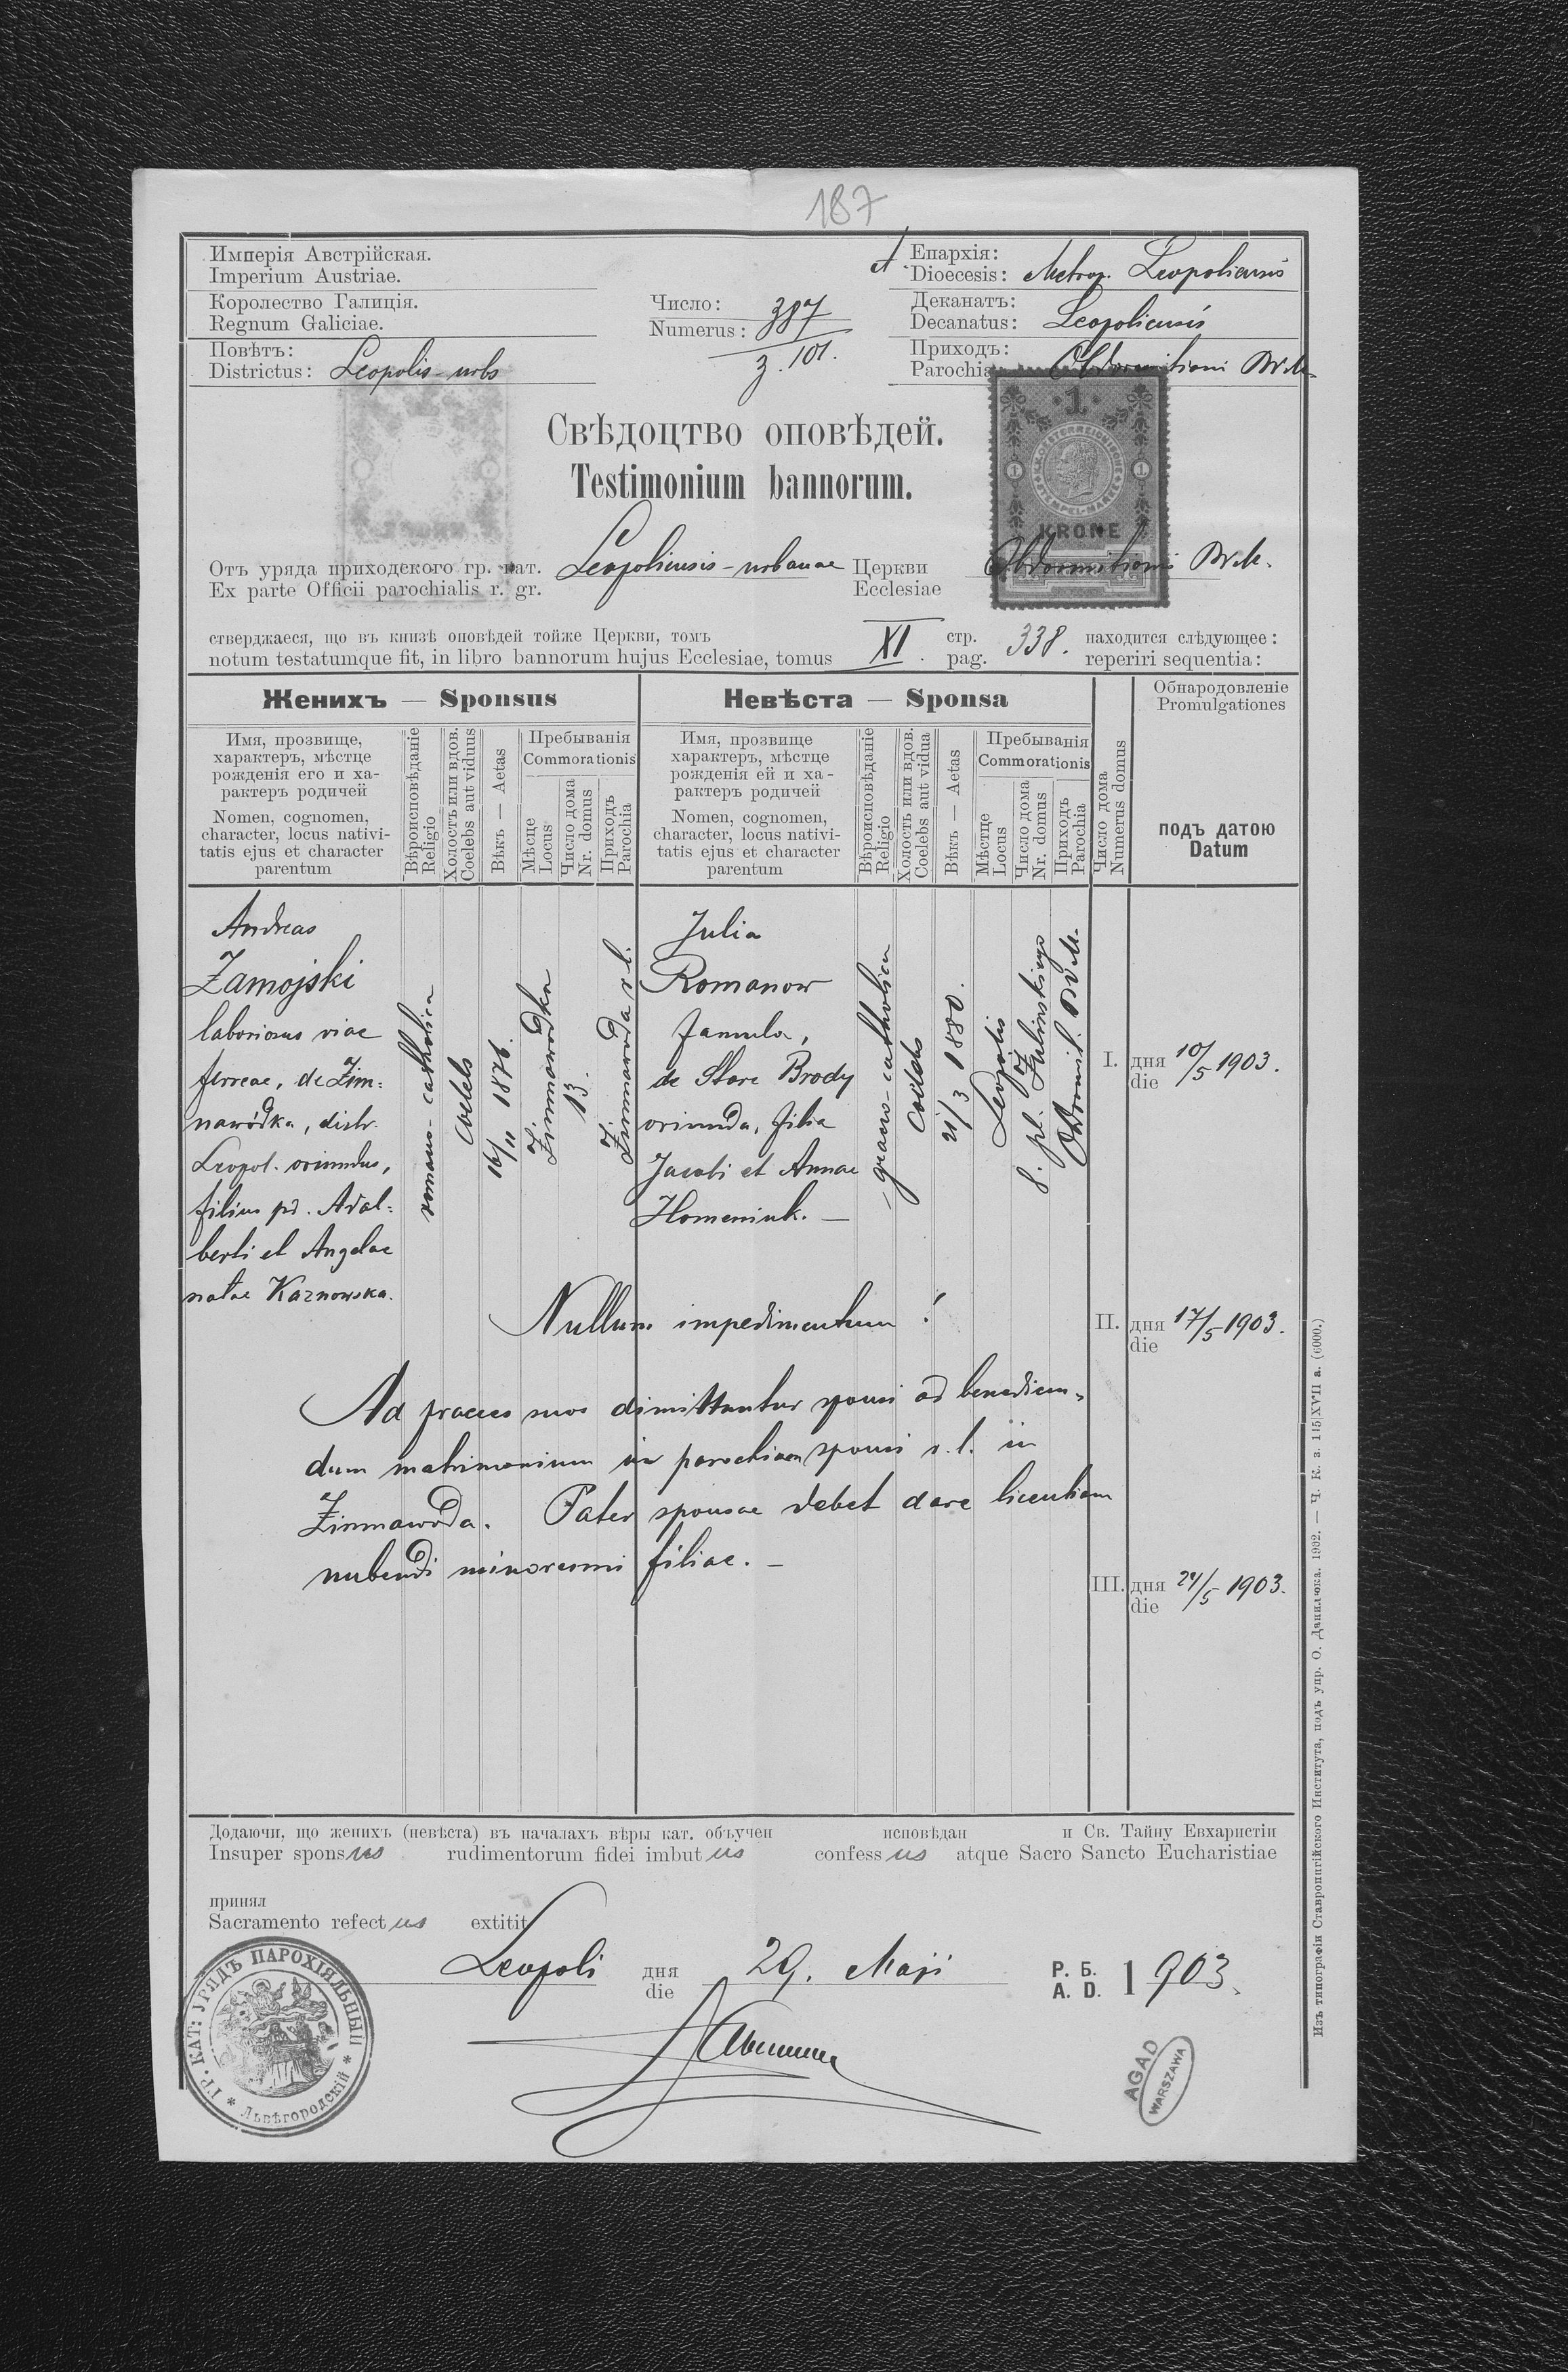 187
Имперія Австрійская.
Imperium Austriae.
Королество Галиція.
Regnum Galiciae.
Повѣтъ:
Districtus: Leopolis-urbs
Число:
Numerus: 387
z. 101.
Епархія:
Dioecesis: Metrop. Leopoliensis
Деканатъ:
Decanatus: Leopoliensis
Приходъ:
Parochia: Obdormitionis BVM.
Свѣдоцтво оповѣдей.
Testimonium bannorum.
1
KRONE
Отъ уряда приходского гр. кат.
Ex parte Officii parochialis r. gr.
Leopoliensis-urbanae
Церкви
Ecclesiae
Obdormitionis BVM.
стверджаеся, що въ книзѣ оповѣдей тойже Церкви, томъ
notum testatumque fit, in libro bannorum hujus Ecclesiae, tomus
XI.
стр.
pag.
338.
находится слѣдующее:
reperiri sequentia:
Женихъ — Sponsus
Имя, прозвище,
характеръ, мѣстце
рожденія его и ха-
рактеръ родичей
Nomen, cognomen,
character, locus nativi-
tatis ejus et character
parentum
Вѣроисповѣданіе
Religio
Холостъ или вдов.
Coelebs aut viduus
Вѣкъ — Aetas
Пребыванія
Commorationis
Мѣстце
Locus
Число дома
Nr. domus
Приходъ
Parochia
Невѣста — Sponsa
Имя, прозвище
характеръ, мѣстце
рожденія ей и ха-
рактеръ родичей
Nomen, cognomen,
character, locus nativi-
tatis ejus et character
parentum
Вѣроисповѣданіе
Religio
Холость или вдов.
Coelebs aut vidua
Вѣкъ — Aetas
Пребыванія
Commorationis
Мѣстце
Locus
Число дома
Nr. domus
Приходъ
Parochia
Число дома
Numerus domus
Обнародовленіе
Promulgationes
подъ датою
Datum
Andreas
Zamojski
laboriosus viae
ferreae, de Zim=
nawódka, distr.
Leopol. oriundus,
filius pd. Adal=
berti et Angelae
natae Karnowska.
romano-catholica
Coelebs
16/11 1876.
Zimnawodka
13.
Zimnawoda r. l.
Julia
Romanow
famula,
de Stare Brody
oriunda, filia
Jacobi et Annae
Homeniuk. —
graeco-catholica
Coelebs
21/3 1880.
Leopolis
8. pl. Zulinskiego
Obdormit. BVM.
I. дня 10/5 1903.
die
II. дня 17/5 1903.
die
III. дня 24/5 1903.
die
Nullum impedimentum!
Ad praeces suos dimittuntur sponsi ad benedicen=
dum matrimonium in parochiam sponsi r. l. in
Zimnawoda. Pater sponsae debet dare licentiam
nubendi minorenni filiae. —
Додаючи, що женихъ (невѣста) въ началахъ вѣры кат. объучен исповѣдан и Св. Тайну Евхаристіи
Insuper sponsus rudimentorum fidei imbutus confessus atque Sacro Sancto Eucharistiae
принял
Sacramento refectus extitit
Leopoli
дня
die
29. Maji
Р. Б.
A. D.
1903.
ГР. КАТ: УРЯДЪ ПАРОХІЯЛЬНЫЙ
* Львѣгородскій *
AGAD
WARSZAWA
Изъ типографіи Ставропигійского Института, подъ упр. О. Данилюка. 1902. — Ч. К. з. 1|5|XVII a. (6000.)